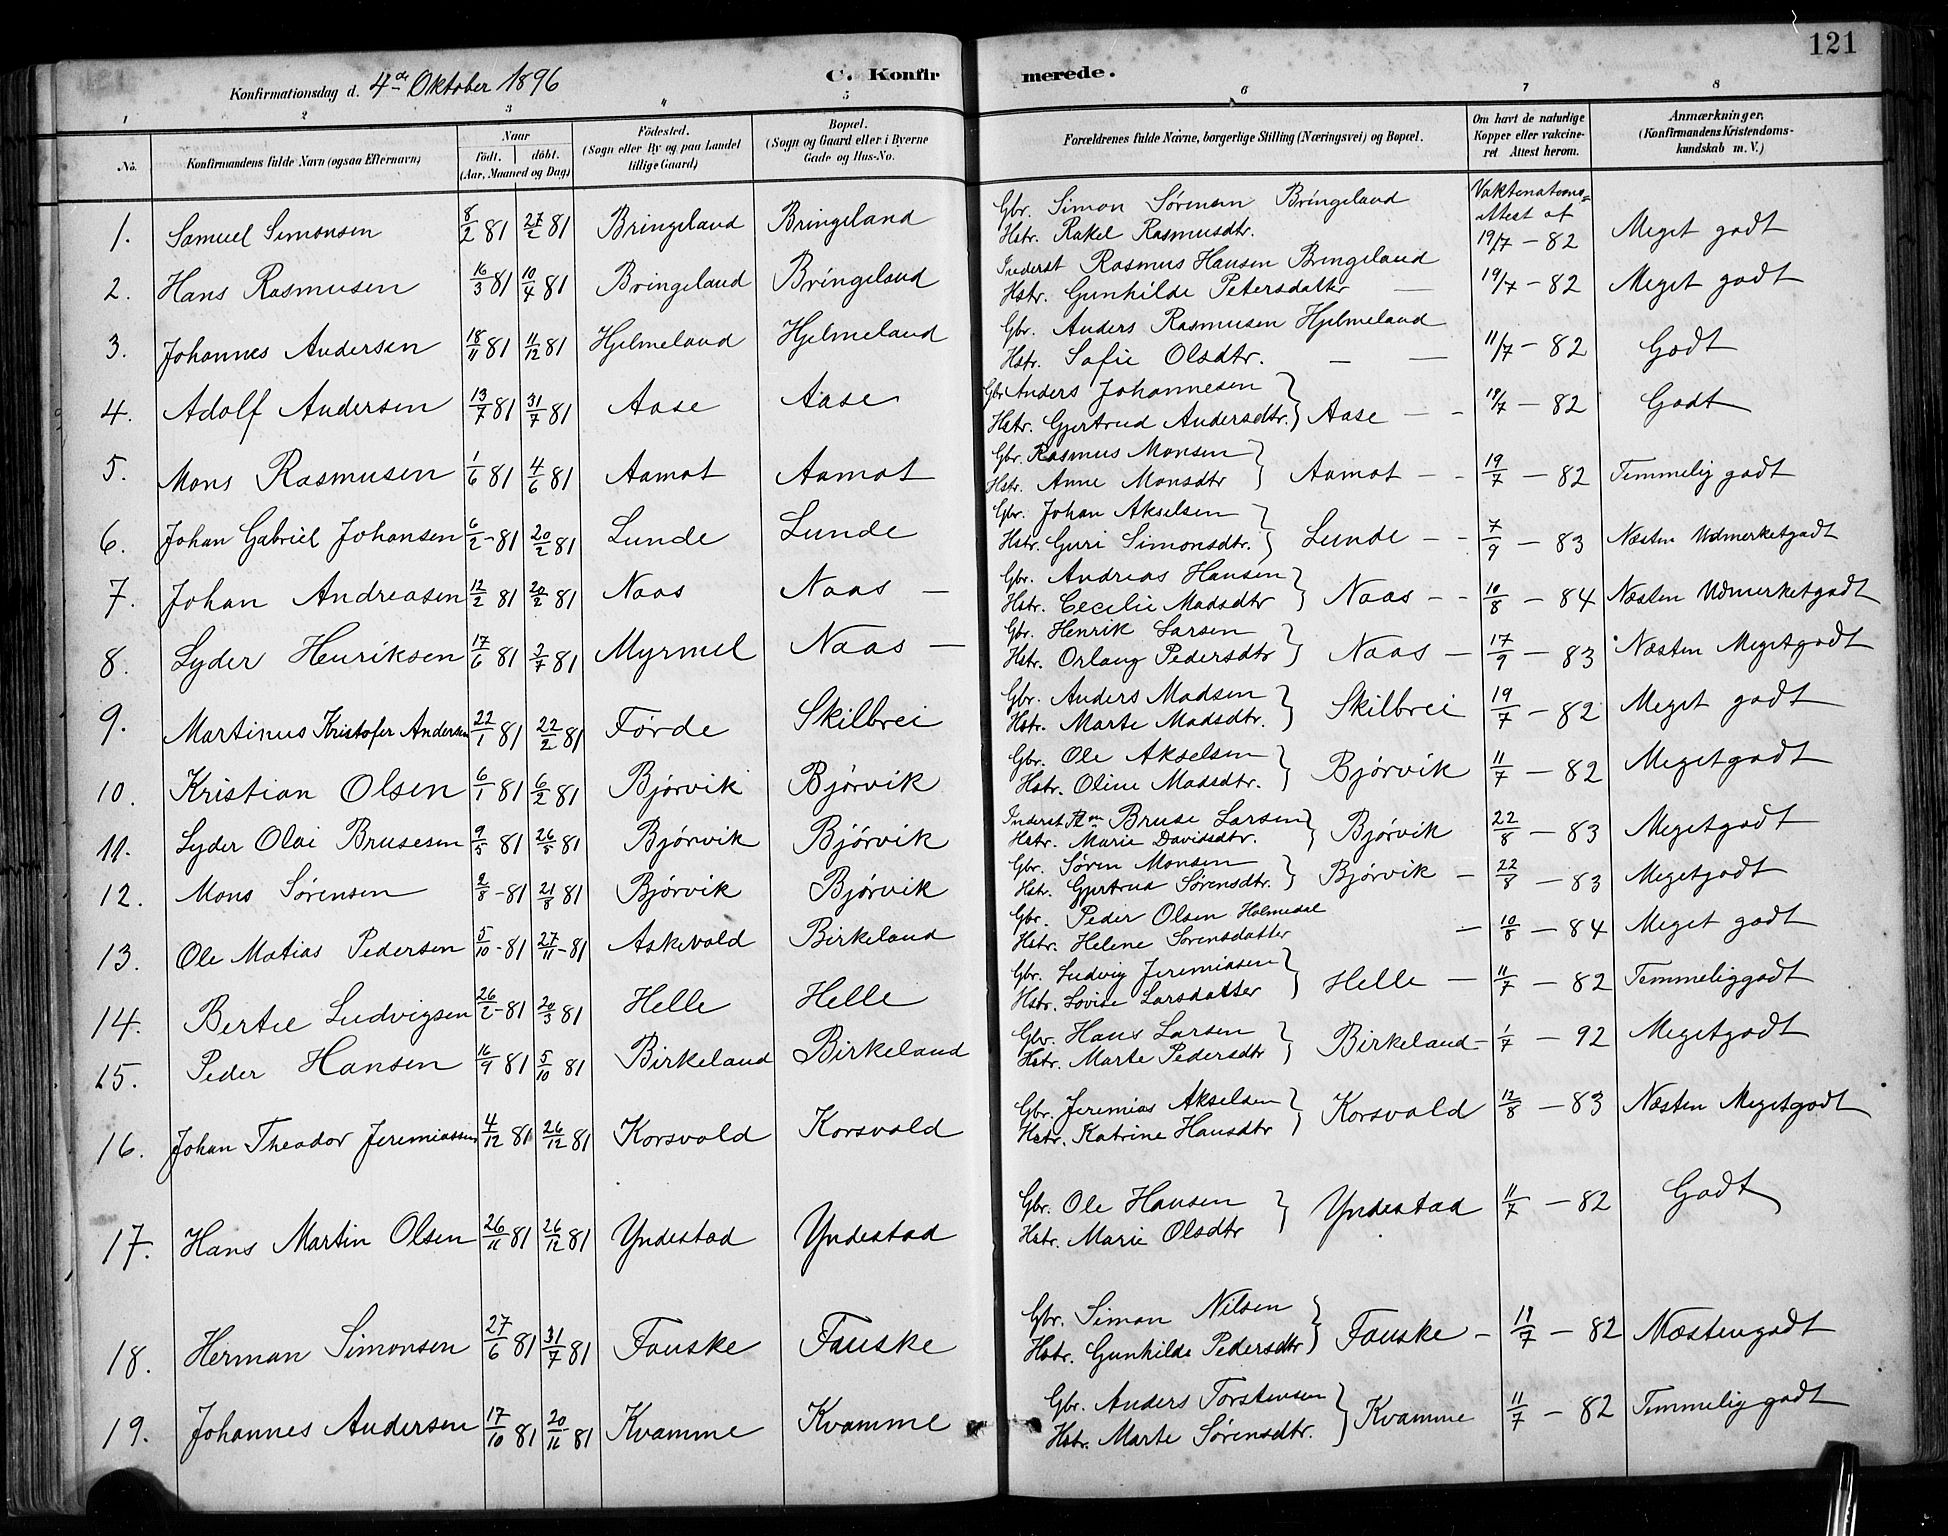 121
Konfirmationsdag d. 4de Oktober 1896
C. Konfirmerede.
1 2 3 4 5 6 7 8
No. Konfirmandens fulde Navn (ogsaa Efternavn) Naar født. døbt. (Aar, Maaned og Dag) Fødested. (Sogn eller By og paa Landet tillige Gaard) Bopæl. (Sogn og Gaard eller i Byerne Gade og Hus-No. Forældrenes fulde Navne, borgerlige Stilling (Næringsvei) og Bopæl. Om havt de naturlige Kopper eller vakcineret Attest herom. Anmærkninger, (Konfirmandens Kristendomskundskab m. V.)
Vaktinations=
attest af
Gbr. Simon Sørensen Bringeland
1. Samuel Simonsen 8/2 81 27/2 81 Bringeland Bringeland Hstr. Rakel Rasmusdtr. 19/7 - 82 Meget godt
Inderst Rasmus Hansen Bringeland
2. Hans Rasmusen 16/3 81 10/4 81 Bringeland Bringeland Hstr. Gunhilde Petersdatter — 19/7 - 82 Meget godt
Gbr. Anders Rasmusen Hjelmeland
3. Johannes Andersen 18/11 81 11/12 81 Hjelmeland Hjelmeland Hstr. Sofie Olsdtr. — — 11/7 - 82 Godt
Gbr Anders Johannesen
4. Adolf Andersen 13/7 81 31/7 81 Aase Aase Hstr. Gjertrud Andersdtr. } Aase - - 19/7 - 82 Godt
Gbr. Rasmus Monsen
5. Mons Rasmusen 1/6 81 4/6 81 Aamot Aamot Hstr. Anne Monsdtr } Aamot - - 19/7 - 82 Temmelig godt
Gbr. Johan Akselsen
6. Johan Gabriel Johansen 6/2 - 81 20/2 81 Lunde Lunde Hstr. Guri Simonsdtr. } Lunde - - 7/9 - 83 Næsten Udmerketgodt
Gbr. Andreas Hansen
7. Johan Andreasen 12/2 81 20/2 81 Naas Naas — Hstr. Cecilie Madsdtr } Naas - - 10/8 - 84 Næsten Udmerketgodt
Gbr. Henrik Larsen
8. Lyder Henriksen 17/6 81 3/7 81 Myrmel Naas — Hstr. Orlaug Pedersdtr } Naas - 17/9 - 83 Næsten Megetgodt
Gbr. Anders Madsen
9. Martinus Kristofer Andersen 22/1 81 22/2 81 Førde Skilbrei Hstr. Marte Madsdtr. } Skilbrei 19/7 - 82 Meget godt
Gbr. Ole Akselsen
10. Kristian Olsen 6/1 81 6/2 81 Bjørvik Bjørvik Hstr. Oline Madsdtr. } Bjørvik 11/7 - 82 Megetgodt
Inderst Bruse Larsen
11. Lyder Olai Brusesen 9/5 81 26/5 81 Bjørvik Bjørvik Hstr. Marie Davidsdtr. } Bjørvik 22/8 - 83 Megetgodt
Gbr. Søren Monsen
12. Mons Sørensen 2/8 - 81 21/8 81 Bjørvik Bjørvik Hstr. Gjertrud Sørensdtr. } Bjørvik - 22/8 - 83 Megetgodt
Gbr. Peder Olsen Holmedal
13. Ole Matias Pedersen 5/10 - 81 27/11 - 81 Askevold Birkeland Hstr. Helene Sørensdatter - 10/8 - 84 Meget godt
Gbr. Ludvig Jeremiasen
14. Bertel Ludvigsen 26/2 - 81 20/3 81 Helle Helle Hstr. Lovise Larsdatter } Helle - 11/7 - 82 Temmeliggodt
Gbr. Hans Larsen
15. Peder Hansen 16/9 81 5/10 81 Birkeland Birkeland Hstr. Marte Pedersdtr } Birkeland - 1/7 - 92 Megetgodt
Gbr. Jeremias Akselsen
16. Johan Theodor Jeremiassen 4/12 81 26/12 81 Korsvold Korsvold Hstr. Katrine Hansdtr } Korsvold 12/8 - 83 Næsten Megetgodt
Gbr. Ole Hansen
17. Hans Martin Olsen 26/11 81 26/12 81 Yndestad Yndestad Hstr. Marie Olsdtr } Yndestad 11/7 - 82 Godt
Gbr. Simon Nilsen
18. Herman Simonsen 27/6 81 31/7 81 Fauske Fauske Hstr. Gunhilde Pedersdtr } Fauske - 19/7 - 82 Næstengodt
Gbr. Anders Torstensen
19. Johannes Andersen 17/10 81 20/11 81 Kvamme Kvamme Hstr. Marte Sørensdtr. } Kvamme 11/7 - 82 Temmelig godt